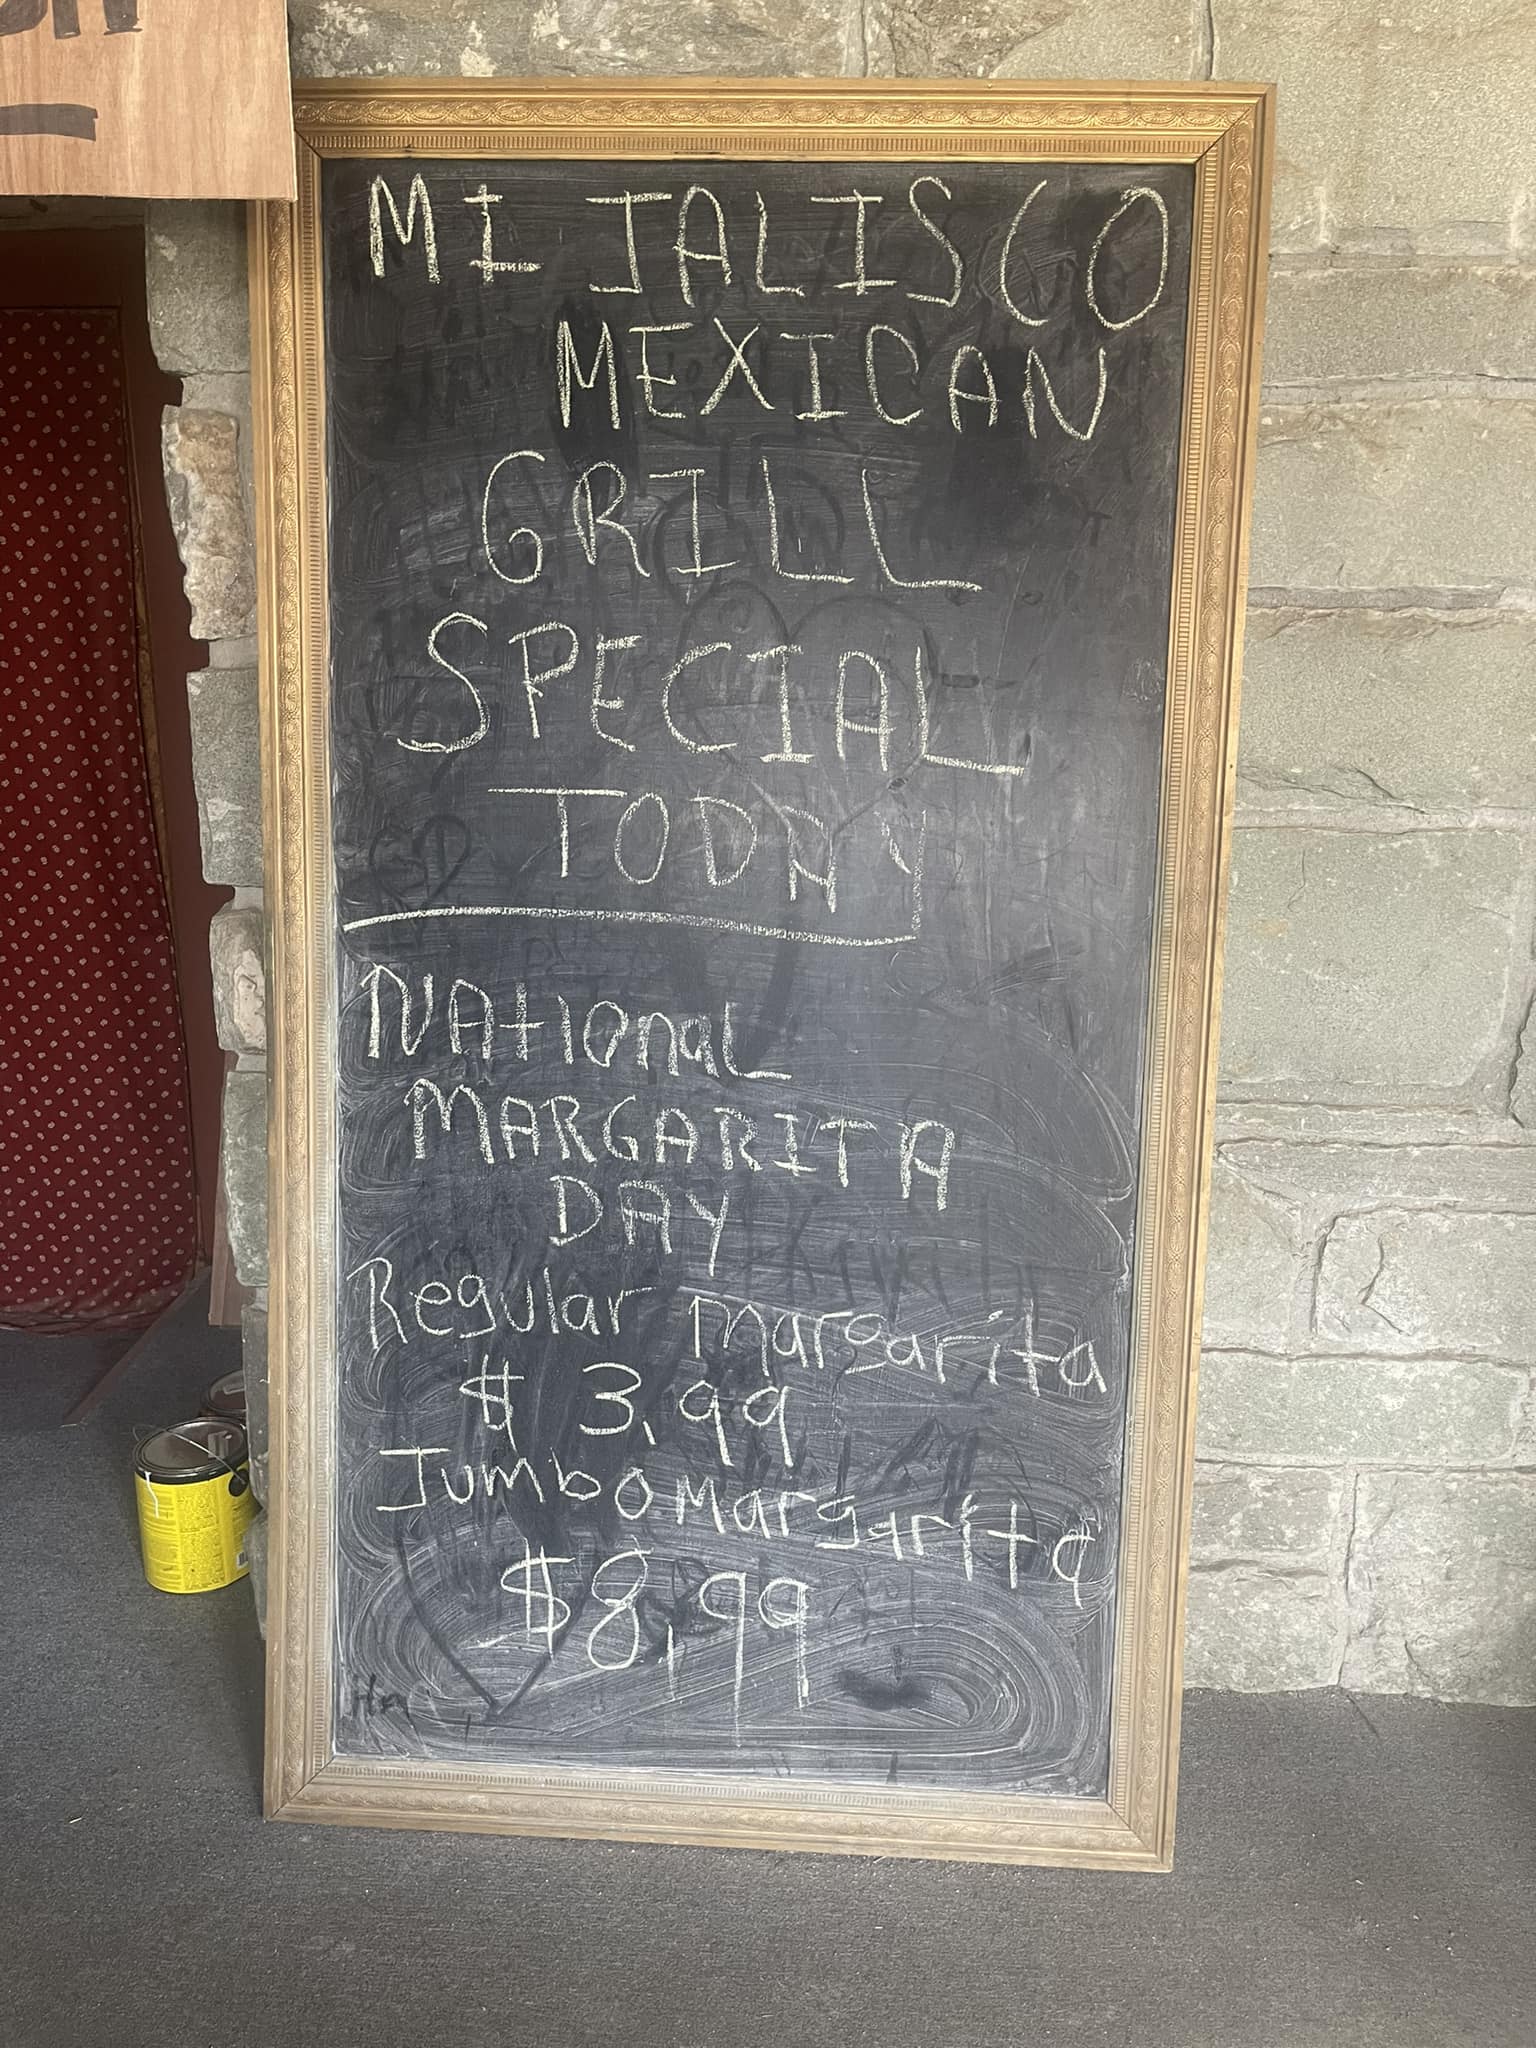 MI JALISCO
MEXICAN
GRILL
SPECIAL
TODAY
NATIonaL
MARGARITA
DAY
Regular margarita
$ 3,99
JumboMargarita
$8,99